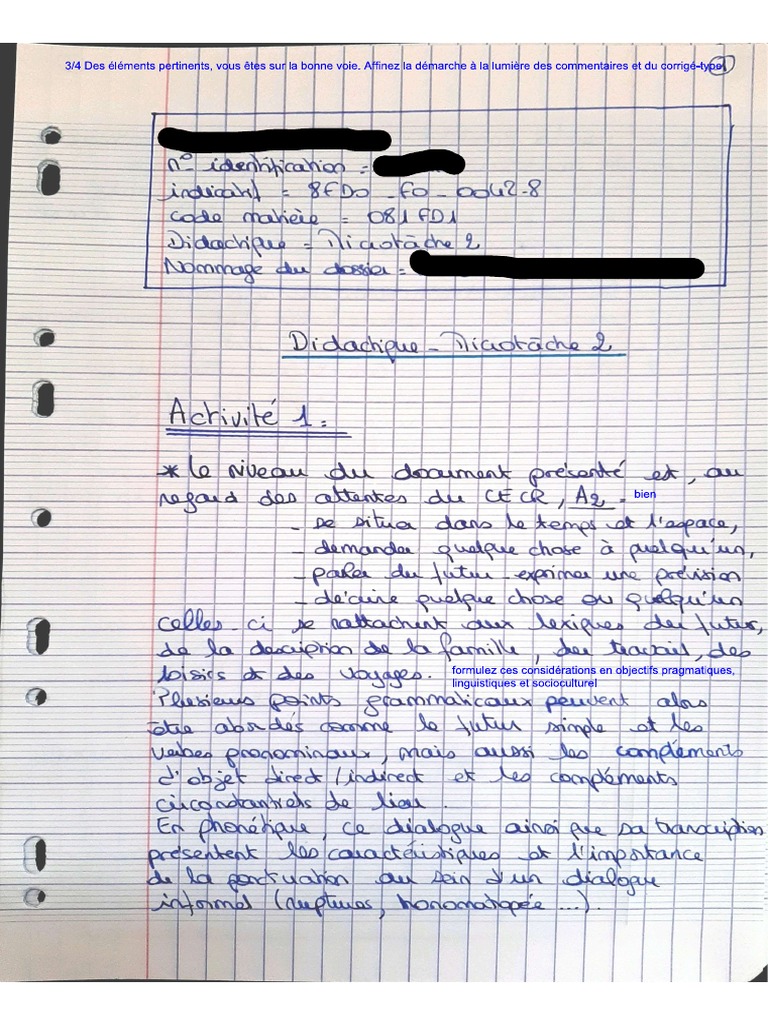 3/4 Des éléments pertinents, vous êtes sur la bonne voie. Affinez la démarche à la lumière des commentaires et du corrigé-type.
n° identification =
indicatif = 8FD0 _ F0 _ 0042-8
code matière = 081FD1
Didactique = Microtâche 2
Nommage du dossier =
Didactique - Microtâche 2
Activité 1 =
* Le niveau du document présenté est, au
regard des attentes du CECR, A2. bien
- se situer dans le temps et l'espace,
- demander quelque chose à quelqu'un,
- parler du futur - exprimer une prévision
- décrire quelque chose ou quelqu'un
Celles-ci se rattachent aux lexiques du futur,
de la description de la famille, du travail, des
loisirs et des voyages. formulez ces considérations en objectifs pragmatiques,
linguistiques et socioculturel
Plusieurs points grammaticaux peuvent alors
être abordés comme le futur simple et les
verbes pronominaux, mais aussi les compléments
d'objet direct/indirect et les compléments
circonstantiels de lieu.
En phonétique, ce dialogue ainsi que sa transcription
présentent les caractéristiques et l'importance
de la ponctuation au sein d'un dialogue
informel (ruptures, honomatopée ...).